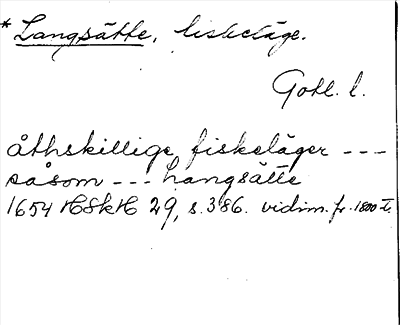 * Langsätte, fiskeläge.
Gotl. l.
åthskillige fiskeläger ---
såsom --- Langsätte
1654 HSkH 29, s. 386. vidim. fr. 1800 t.